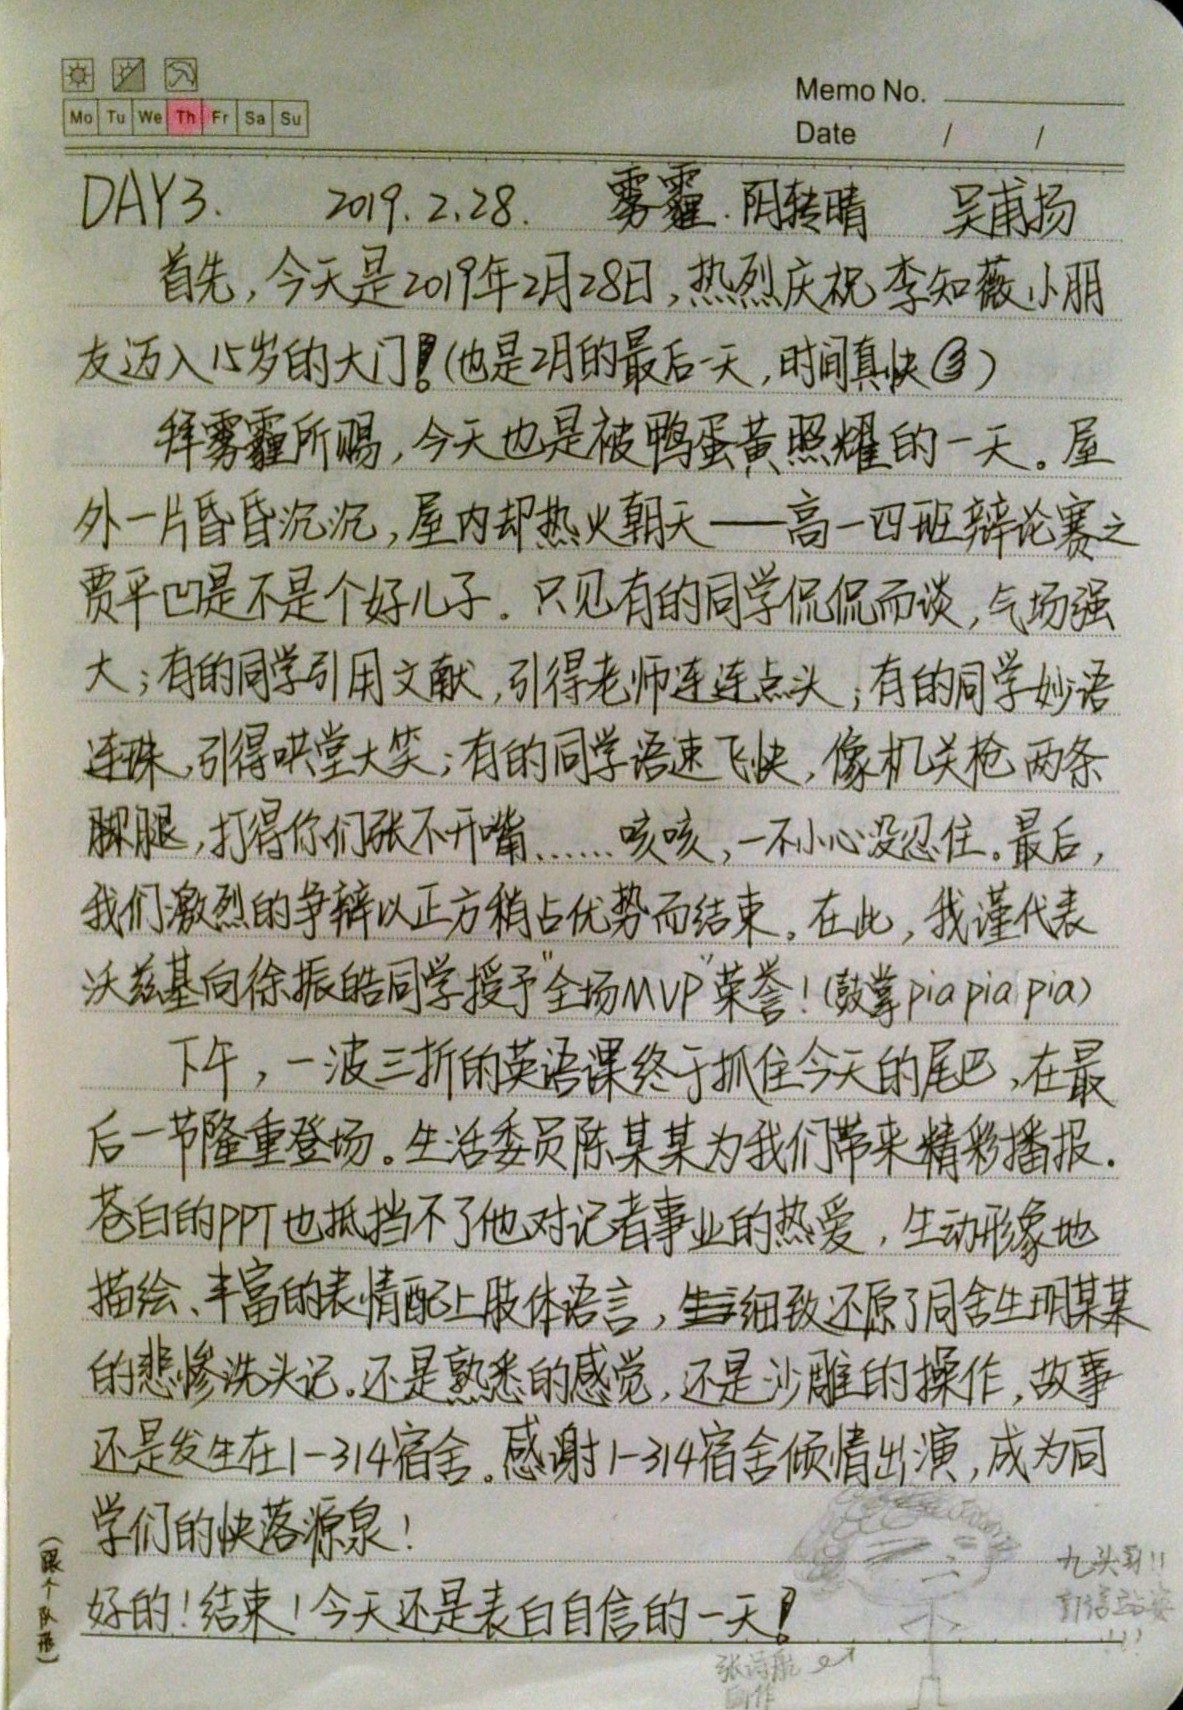 Mo Tu We Th Fr Sa Su
Memo No.
Date / /
DAY3. 2019.2.28. 雾霾.阴转晴 吴甫扬
首先,今天是2019年2月28日,热烈庆祝李知薇小朋
友迈入15岁的大门!(也是2月的最后一天,时间真快③)
拜雾霾所赐,今天也是被鸭蛋黄照耀的一天。屋
外一片昏昏沉沉,屋内却热火朝天——高一四班辩论赛之
贾平凹是不是个好儿子。只见有的同学侃侃而谈,气场强
大;有的同学引用文献,引得老师连连点头;有的同学妙语
连珠,引得哄堂大笑;有的同学语速飞快,像机关枪两条
腿,打得你们张不开嘴……咳咳,一不小心没忍住。最后,
我们激烈的争辩以正方稍占优势而结束。在此,我谨代表
沃兹基向徐振皓同学授予"全场MVP"荣誉!(鼓掌pia pia pia)
下午,一波三折的英语课终于抓住今天的尾巴,在最
后一节隆重登场。生活委员陈某某为我们带来精彩播报.
苍白的PPT也抵挡不了他对记者事业的热爱,生动形象地
描绘、丰富的表情配上肢体语言,细致还原了同舍生明某某
的悲惨洗头记。还是熟悉的感觉,还是沙雕的操作,故事
还是发生在1-314宿舍。感谢1-314宿舍倾情出演,成为同
学们的快落源泉!
好的!结束!今天还是表白自信的一天!
(跟个队形)
九头哥!!
!!!
张诗航